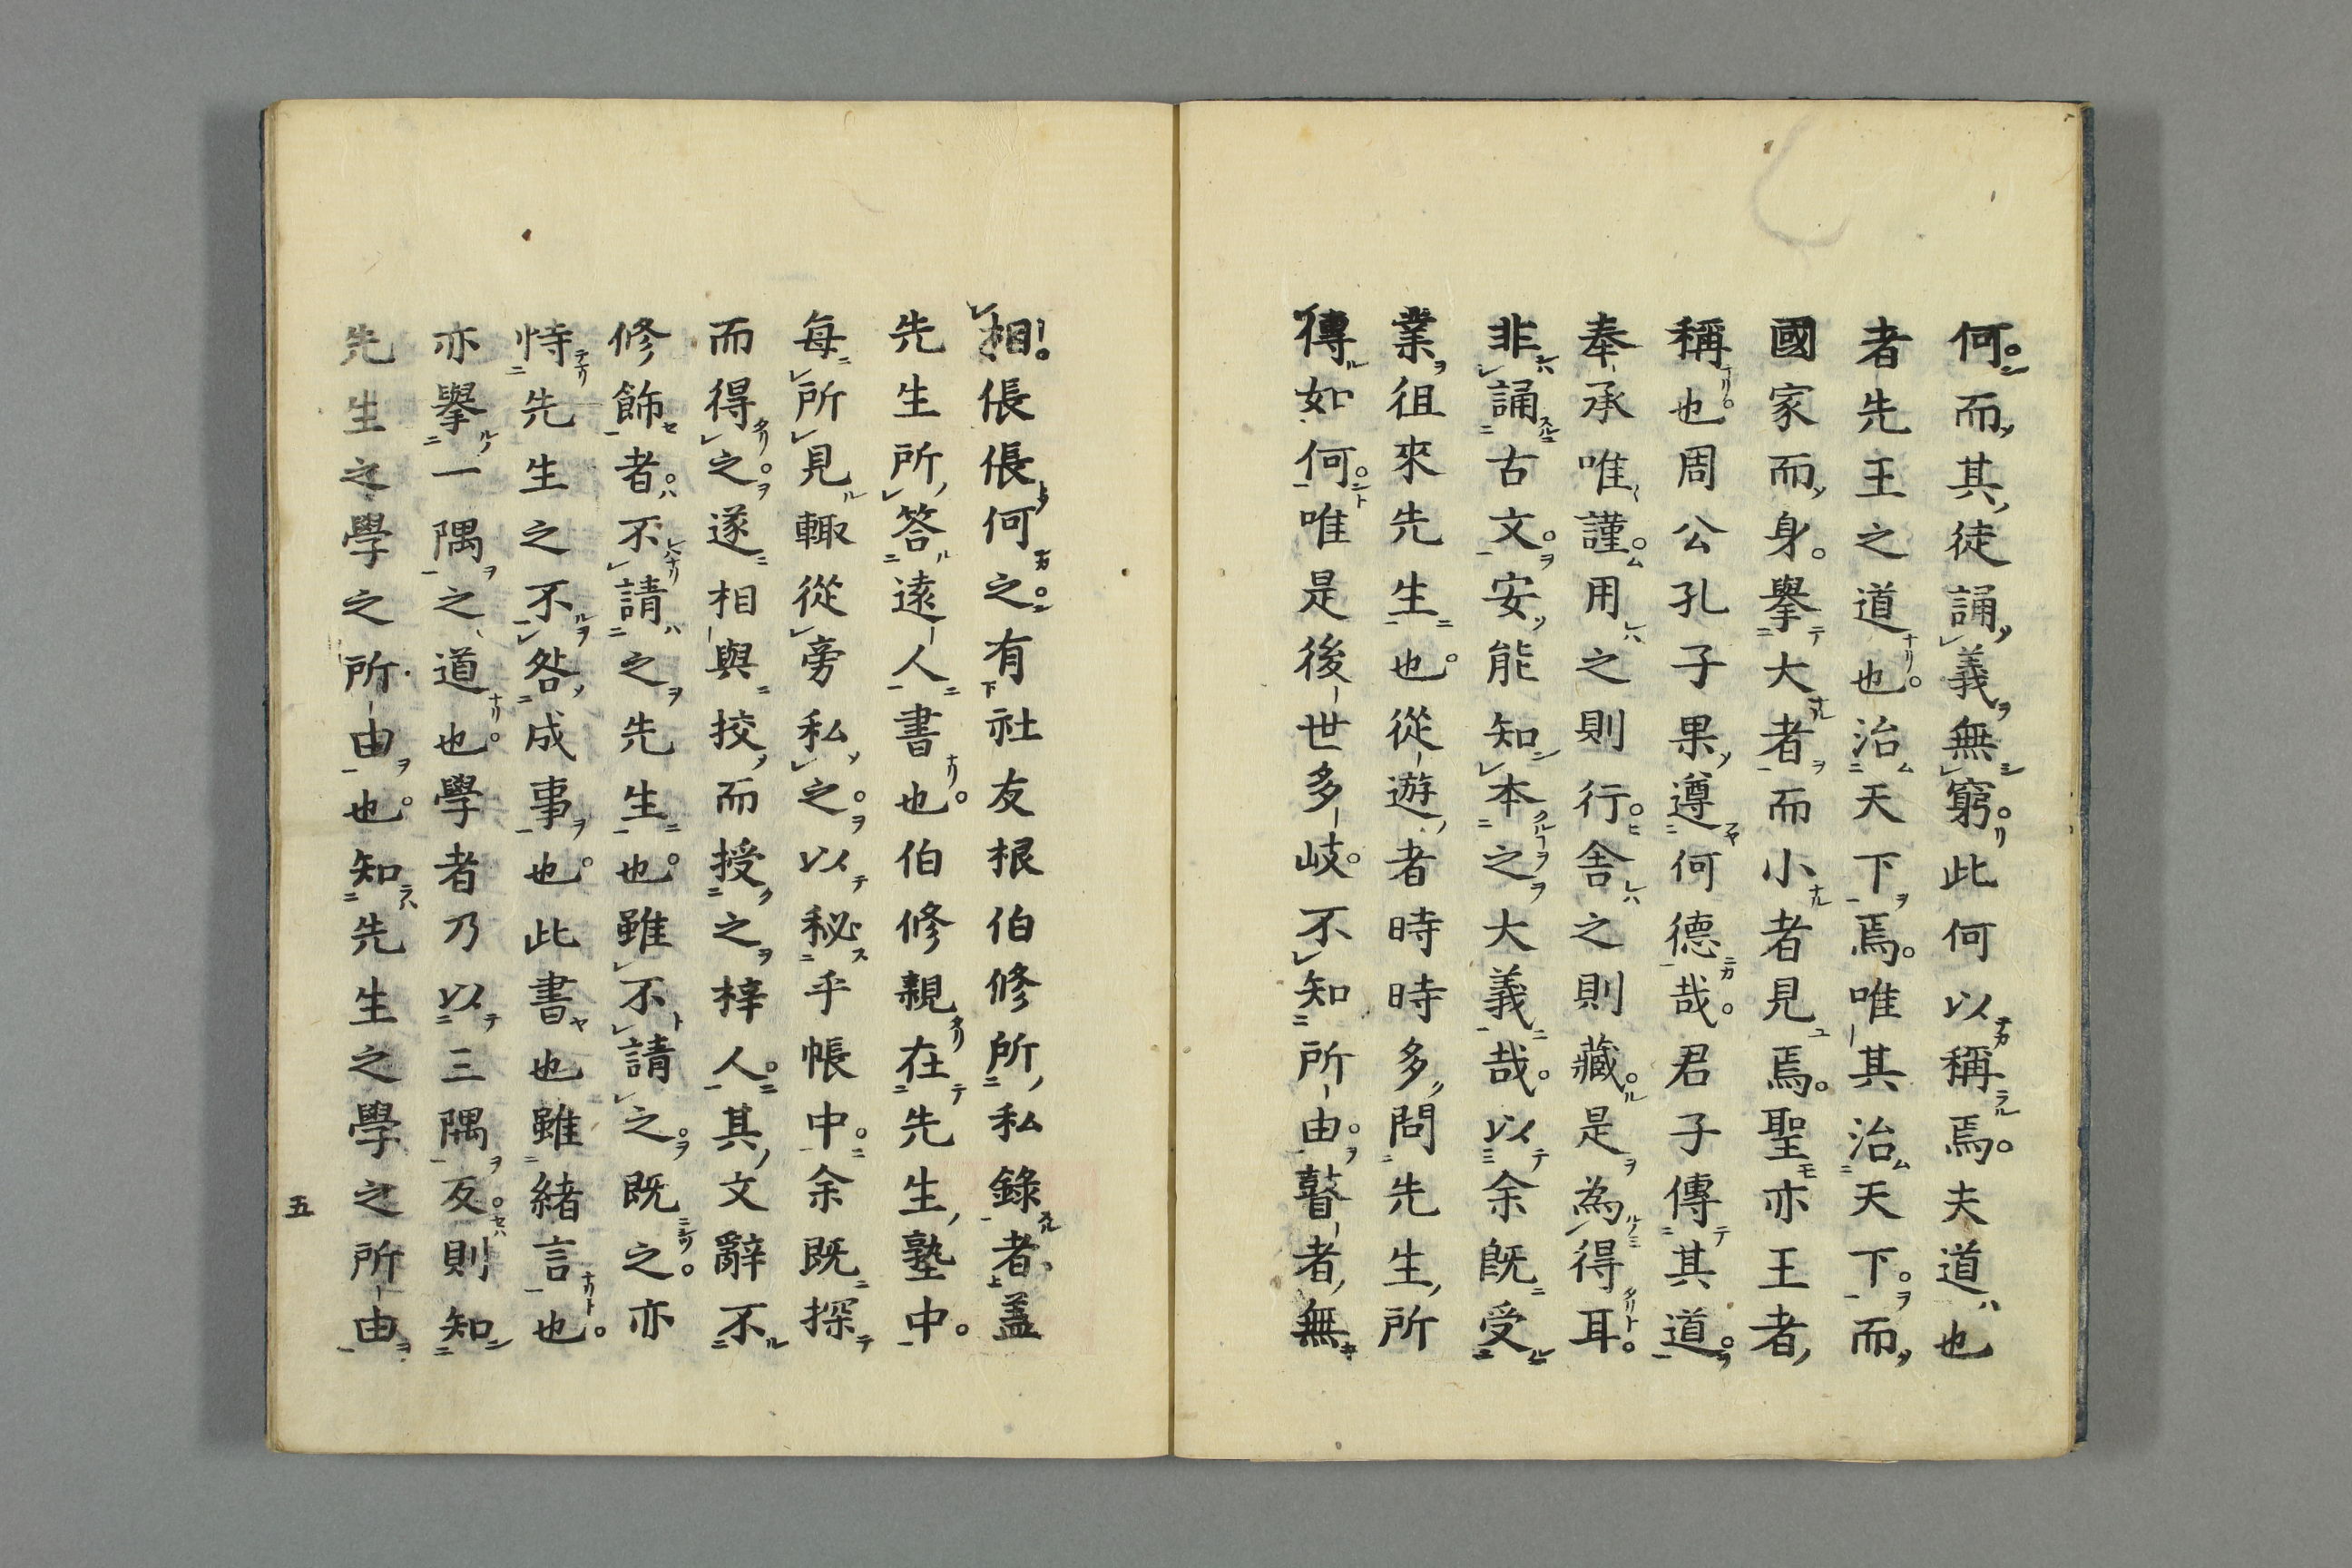 何而其徒誦義無窮此何以稱焉夫道也
者先王之道也治天下焉唯其治天下而
國家而身擧大者而小者見焉聖亦王者
稱也周公孔子果遵何德哉君子傳其道
奉承唯謹用之則行舎之則藏是為得耳
非誦古文安能知本之大義哉以余既受
業徂來先生也從遊者時時多問先生所
傳如何唯是後世多岐不知所由瞽者無
相倀倀何之有社友根伯修所私錄者蓋
先生所答遠人書也伯修親在先生塾中
每所見輙從旁私之以秘乎帳中余既探
而得之遂相與挍而授之梓人其文辭不
修飾者不請之先生也雖不請之既之亦
恃先生之不咎成事也此書也雖緒言也
亦擧一隅之道也學者乃以三隅反則知
先生之學之所由也知先生之學之所由
五